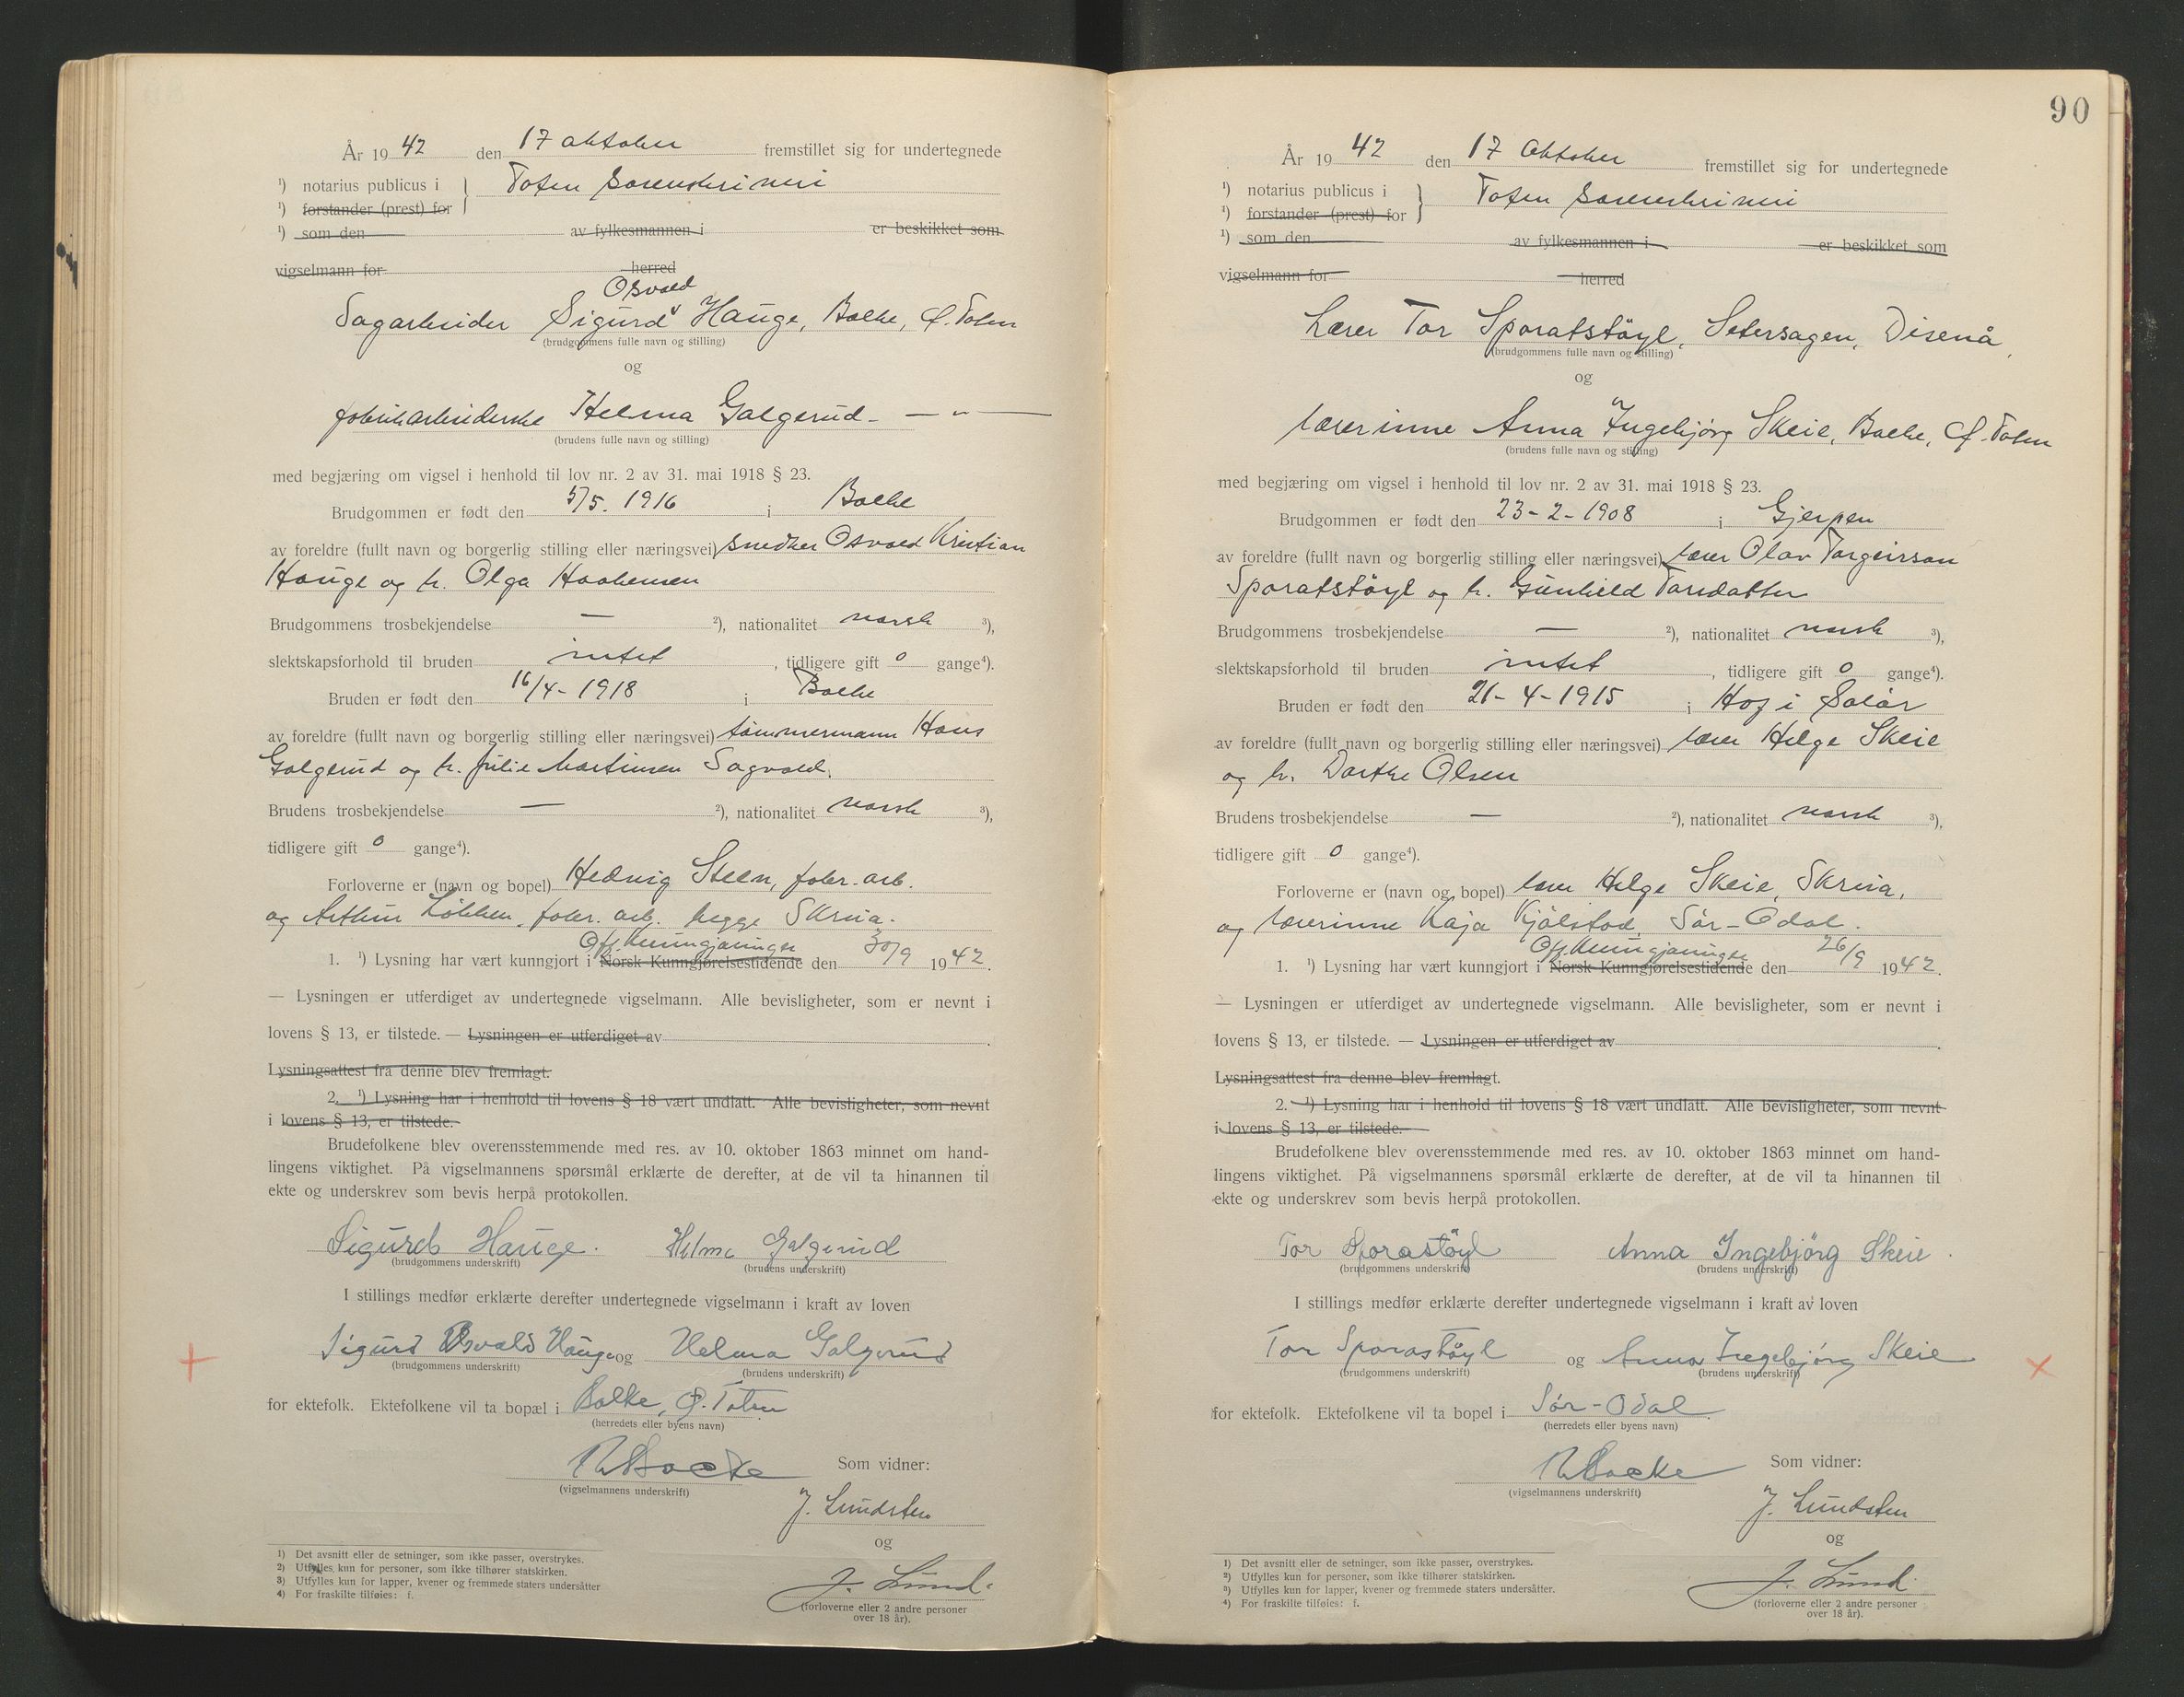 År 1942 den 17 oktober fremstillet sig for undertegnede
¹) notarius publicus i } Toten sorenskriveri
¹) forstander (prest) for
¹) som den av fylkesmannen i er beskikket som
vigselmann for herred
Osvald
Sagarbeider Sigurd ᵛ Hauge, Bolke, Ø. Toten
(brudgommens fulle navn og stilling)
og
fabrikarbeiderske Helma Galgerud - — " —
(brudens fulle navn og stilling)
med begjæring om vigsel i henhold til lov nr. 2 av 31. mai 1918 § 23.
Brudgommen er født den 5/5. 1916 i Balke
av foreldre (fullt navn og borgerlig stilling eller næringsvei) snedker Osvald Kristian
Hauge og h. Olga Haakensen
Brudgommens trosbekjendelse — ²), nationalitet norsk ³),
slektskapsforhold til bruden intet , tidligere gift 0 gange⁴).
Bruden er født den 16/4 - 1918 i Balke
av foreldre (fullt navn og borgerlig stilling eller næringsvei) tømmermann Hans
Galgerud og h. Julie Martinsen Sagvold.
Brudens trosbekjendelse — ²), nationalitet norsk ³),
tidligere gift 0 gange⁴).
Forloverne er (navn og bopel) Hedvig Steen, fabr. arb.
og Arthur Løkken, fabr. arb. begge Skreia.
Off. Kunngjøringer
1. ¹) Lysning har vært kunngjort i Norsk Kunngjørelsestidende den 30/9 1942.
— Lysningen er utferdiget av undertegnede vigselmann. Alle bevisligheter, som er nevnt i
lovens § 13, er tilstede. — Lysningen er utferdiget av .
Lysningsattest fra denne blev fremlagt.
2. ¹) Lysning har i henhold til lovens § 18 vært undlatt. Alle bevisligheter, som nevnt
i lovens § 13, er tilstede.
Brudefolkene blev overensstemmende med res. av 10. oktober 1863 minnet om hand-
lingens viktighet. På vigselmannens spørsmål erklærte de derefter, at de vil ta hinannen til
ekte og underskrev som bevis herpå protokollen.
Sigurd Hauge. Helma Galgerud
(brudgommens underskrift) (brudens underskrift)
I stillings medfør erklærte derefter undertegnede vigselmann i kraft av loven
Sigurd Osvald Hauge og Helma Galgerud
(brudgommens underskrift) (brudens underskrift)
for ektefolk. Ektefolkene vil ta bopæl i Balke, Ø. Toten
(herredets eller byens navn)
Som vidner:
(vigselmannens underskrift)
J. Lundsten
og
J. Lund.
(forloverne eller 2 andre personer
over 18 år).
1) Det avsnitt eller de setninger, som ikke passer, overstrykes.
2) Utfylles kun for personer, som ikke tilhører statskirken.
3) Utfylles kun for lapper, kvener og fremmede staters undersåtter
4) For fraskilte tilføies: f.
90
År 1942 den 17 Oktober fremstillet sig for undertegnede
¹) notarius publicus i } Toten sorenskriveri
¹) forstander (prest) for
¹) som den av fylkesmannen i er beskikket som
vigselmann for herred
Lærer Tor Sporatstöyl, Setersagen, Disenå,
(brudgommens fulle navn og stilling)
og
lærerinne Anna Ingebjörg Skeie, Balke, Ø. Toten
(brudens fulle navn og stilling)
med begjæring om vigsel i henhold til lov nr. 2 av 31. mai 1918 § 23.
Brudgommen er født den 23 - 2 - 1908 i Gjerpen
av foreldre (fullt navn og borgerlig stilling eller næringsvei) lærer Olav Torgeirson
Sporatstöyl og h. Gunhild Torsdatter
Brudgommens trosbekjendelse — ²), nationalitet norsk ³),
slektskapsforhold til bruden intet , tidligere gift 0 gange⁴).
Bruden er født den 21 - 4 - 1915 i Hof i Solør
av foreldre (fullt navn og borgerlig stilling eller næringsvei) lærer Helge Skeie
og h. Dorthe Olsen
Brudens trosbekjendelse — ²), nationalitet norsk ³),
tidligere gift 0 gange⁴).
Forloverne er (navn og bopel) lærer Helge Skeie, Skreia,
og lærerinne Kaja Kjölstad, Sör-Odal.
Off. Kunngjøringer
1. ¹) Lysning har vært kunngjort i Norsk Kunngjørelsestidende den 26/9 1942.
— Lysningen er utferdiget av undertegnede vigselmann. Alle bevisligheter, som er nevnt i
lovens § 13, er tilstede. — Lysningen er utferdiget av .
Lysningsattest fra denne blev fremlagt.
2. ¹) Lysning har i henhold til lovens § 18 vært undlatt. Alle bevisligheter, som nevnt
i lovens § 13, er tilstede.
Brudefolkene blev overensstemmende med res. av 10. oktober 1863 minnet om hand-
lingens viktighet. På vigselmannens spørsmål erklærte de derefter, at de vil ta hinannen til
ekte og underskrev som bevis herpå protokollen.
Tor Sporastöyl Anna Ingebjörg Skeie.
(brudgommens underskrift) (brudens underskrift)
I stillings medfør erklærte derefter undertegnede vigselmann i kraft av loven
Tor Sporastöyl og Anna Ingebjörg Skeie
(brudgommens underskrift) (brudens underskrift)
for ektefolk. Ektefolkene vil ta bopel i Sör-Odal.
(herredets eller byens navn)
Som vidner:
(vigselmannens underskrift)
J. Lundsten
og
J. Lund.
(forloverne eller 2 andre personer
over 18 år).
1) Det avsnitt eller de setninger, som ikke passer, overstrykes.
2) Utfylles kun for personer, som ikke tilhører statskirken.
3) Utfylles kun for lapper, kvener og fremmede staters undersåtter.
4) For fraskilte tilføies: f.